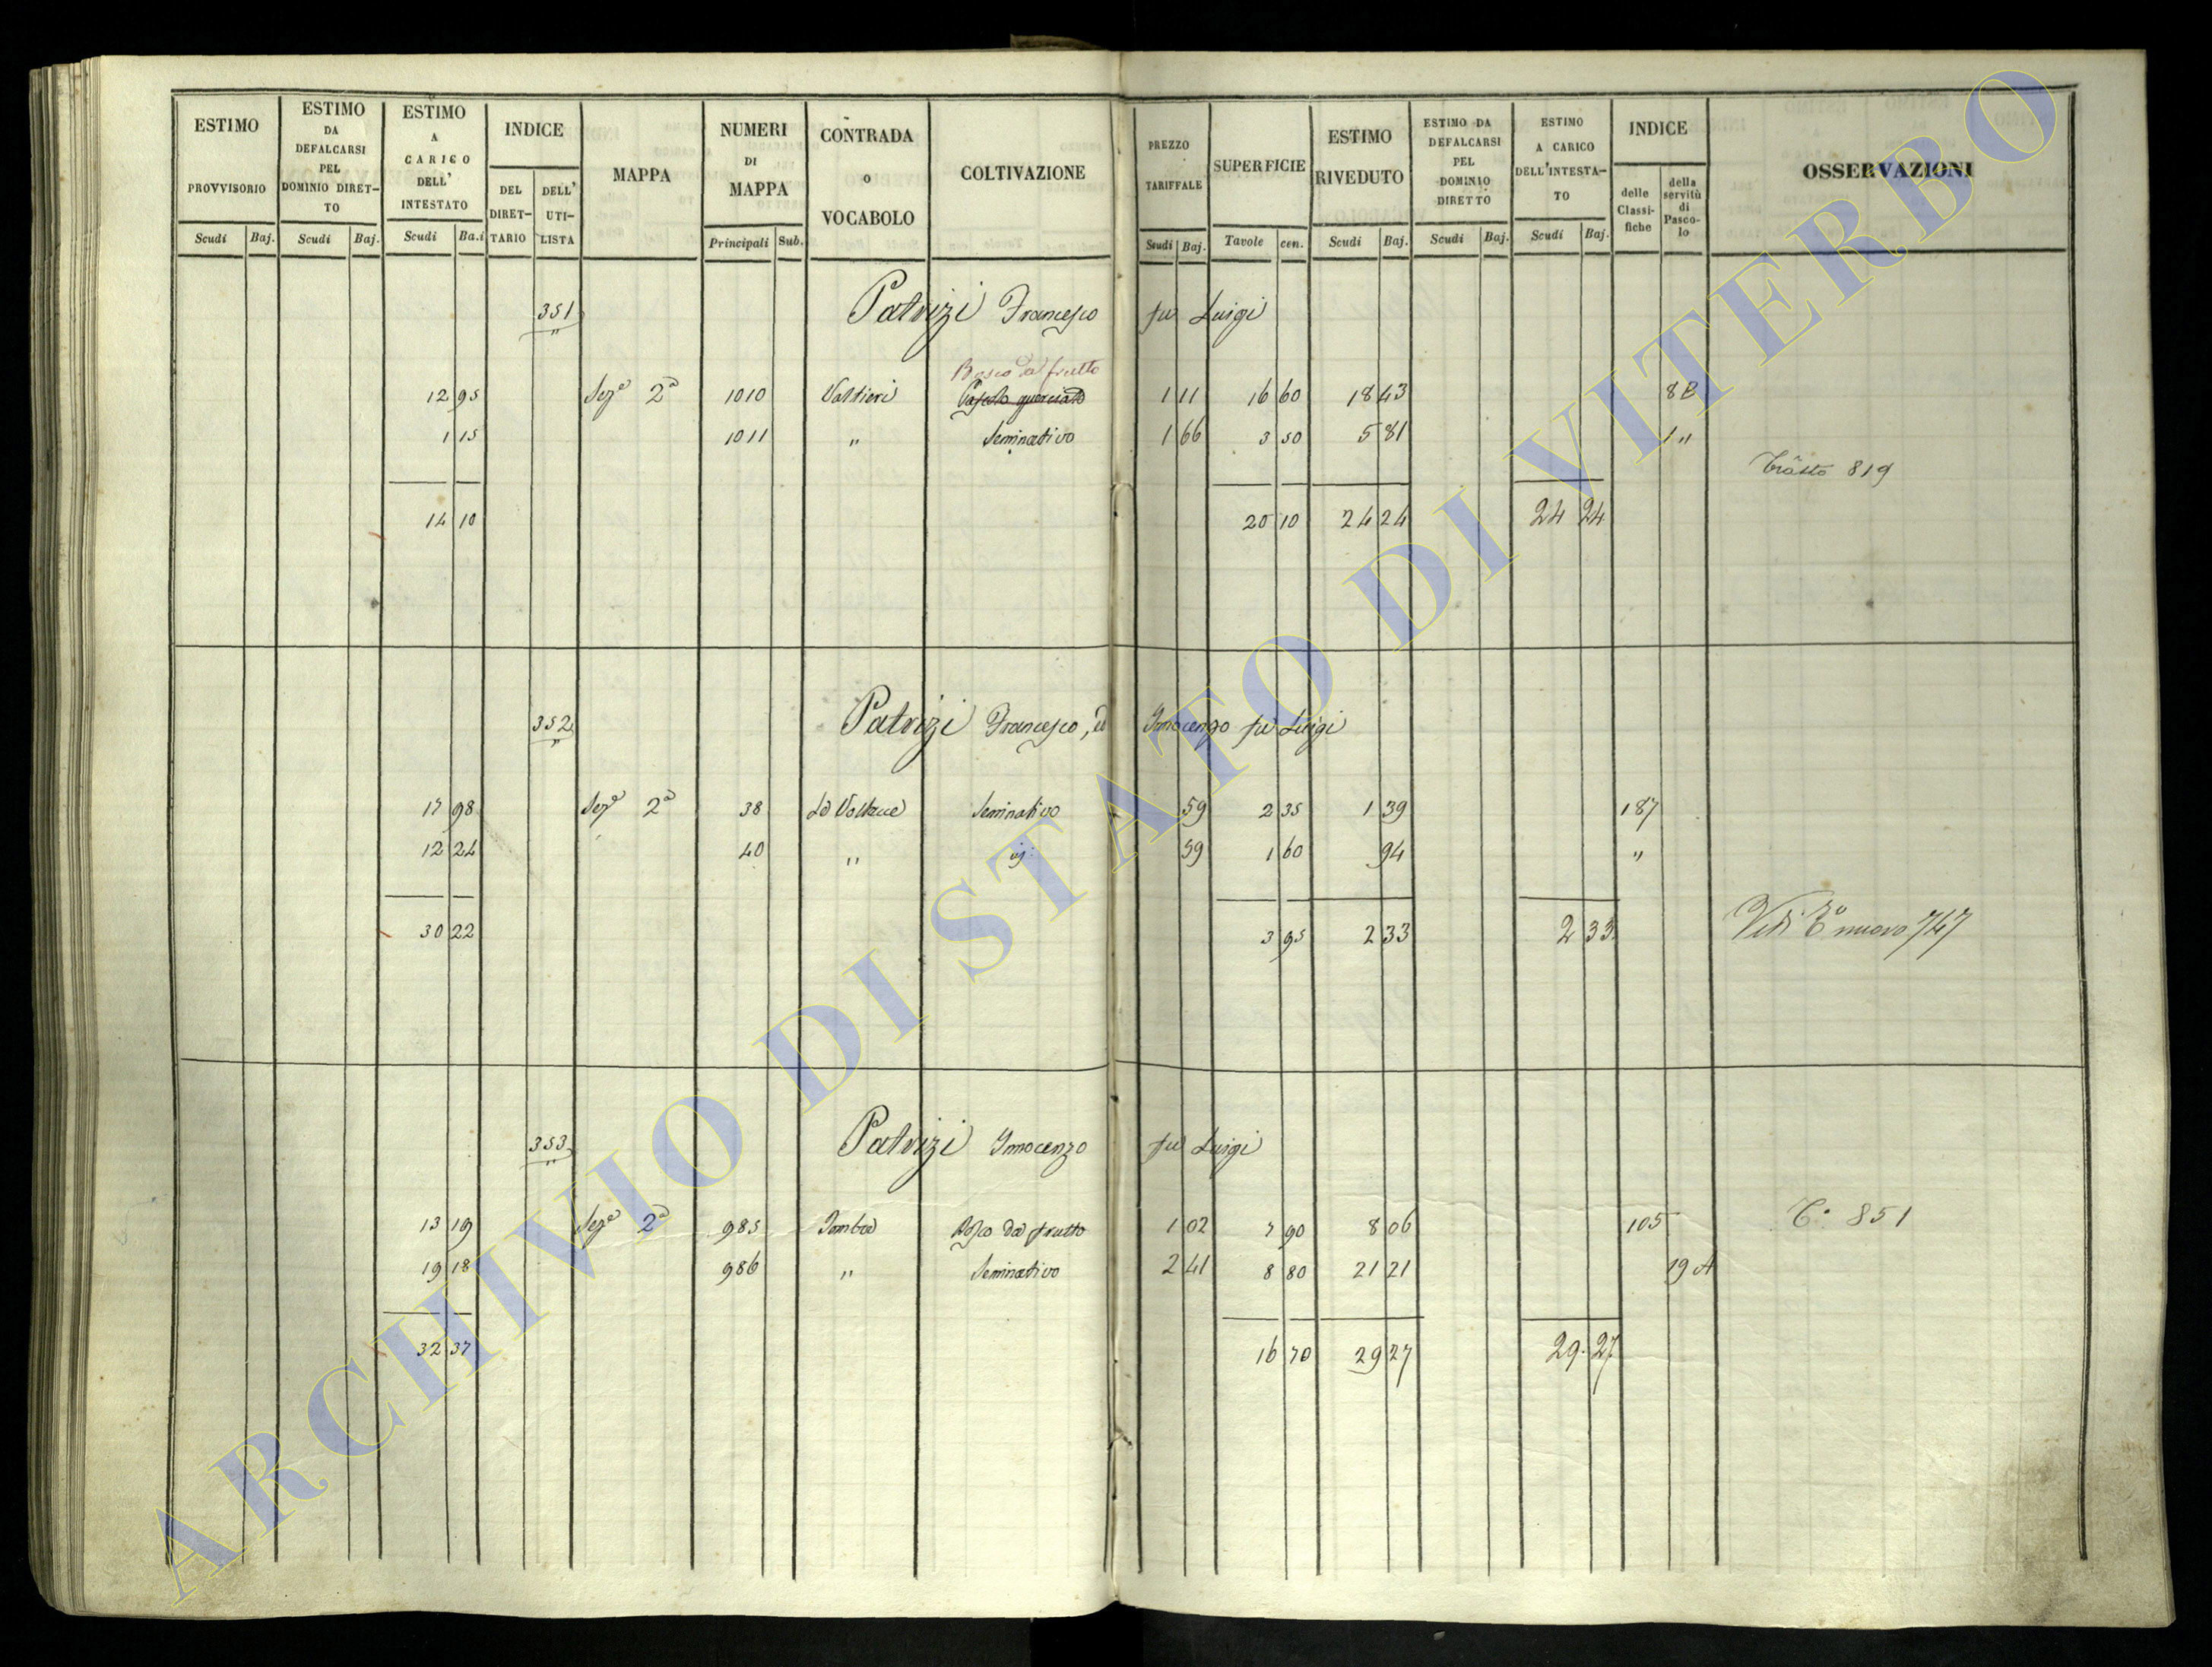 ESTIMO PROVVISORIO Scudi Baj.
ESTIMO DA DEFALCARSI PEL DOMINIO DIRET-TO Scudi Baj.
ESTIMO A CARICO DELL' INTESTATO Scudi Ba.i
INDICE DEL DIRET-TARIO DELL' UTI-LISTA
MAPPA
NUMERI DI MAPPA Principali Sub.
CONTRADA O VOCABOLO
COLTIVAZIONE
PREZZO TARIFFALE Scudi Baj.
SUPERFICIE Tavole cen.
ESTIMO RIVEDUTO Scudi Baj.
ESTIMO DA DEFALCARSI PEL DOMINIO DIRETTO Scudi Baj.
ESTIMO A CARICO DELL'INTESTA-TO Scudi Baj.
INDICE delle Classi-fiche della servitù di Pasco-lo
OSSERVAZIONI
351 Patrizi Francesco fu Luigi
Bosco da frutto
12 95 Sez.e 2a 1010 Valtieri Pascolo querciato 1 11 16 60 18 43 8 B
1 15 1011 " Seminativo 1 66 3 50 5 81 1 "
819
14 10 20 10 24 24 24 24
352 Patrizi Francesco, ed Innocenzo fu Luigi
17 98 Sez.e 2a 38 Seminativo 59 2 35 1 39 187
12 24 40 " 59 1 60 94 "
30 22 3 95 2 33 2 33 nuovo 747
353 Patrizi Innocenzo fu Luigi
13 19 Sez.e 2a 985 Bosco da frutto 1 02 7 90 8 06 105 851
19 18 986 " Seminativo 2 41 8 80 21 21 19 A
32 37 16 70 29 27 29. 27
ARCHIVIO DI STATO DI VITERBO